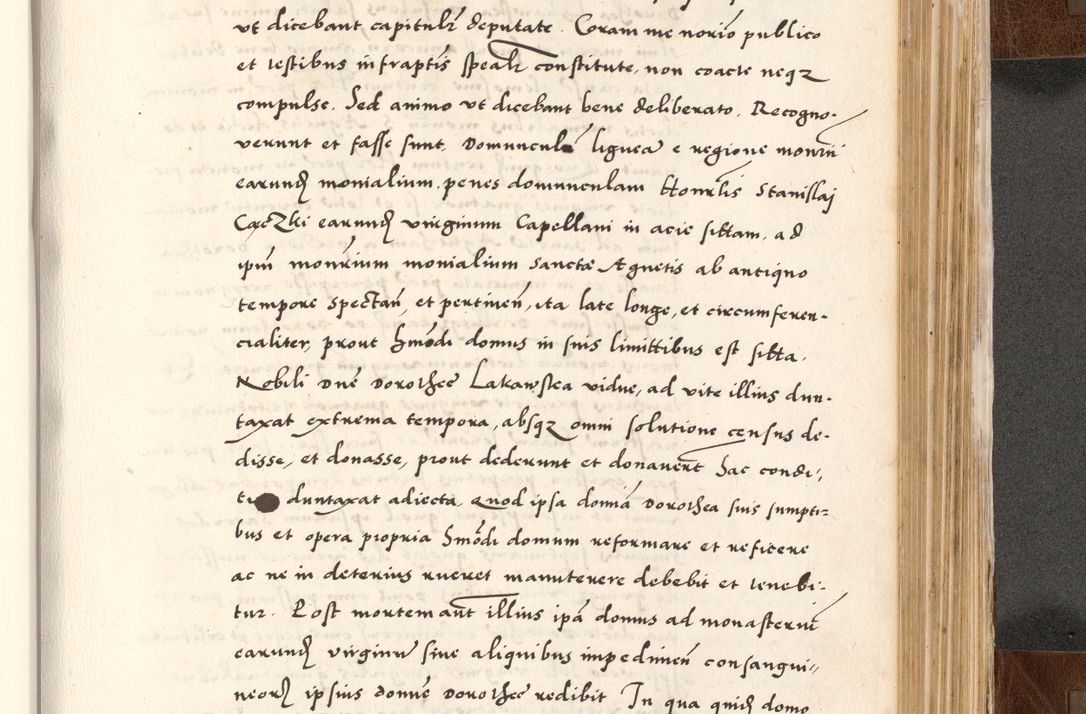 ut dicebant capitulr̃ deputate. Coram me norio publico
et testibus infraptis spealr constitute, non coacte neqz
compulse. Sed animo ut dicebant bene deliberato. Recogno-
verunt et fasse sunt. Domunculã ligneã e regione monrii
earund monialium, penes domunculam Honrlis Stanislaj
CącZki earund virginum Capellani in acie sittam, ad
ipm monrium monialium Sanctæ Agnetis ab antiquo
tempore spectan, et pertinen, ita late longe, et circumferen-
cialiter, prout hmodi domus in suis limittibus est sitta.
Nobili Dne Dorothee Lakawska vidue, ad vite illius dun-
taxat extrema tempora, absqz omni solutione census de-
disse, et donasse, prout dederunt et donavert hac condi-
duntaxat adiecta. Quod ipsa domia Dorothea suis sumpti=
bus et opera propria hmodi domum reformare et reficere
ac ne in deterius rueret manutenere debebit et tenebi-
tur. Post mortem aut illius ipa domus ad monasteriũ
earund virginũ sine aliquibus impedimen consangui-
neor ipsius domne Dorothee redibit In qua quid domo